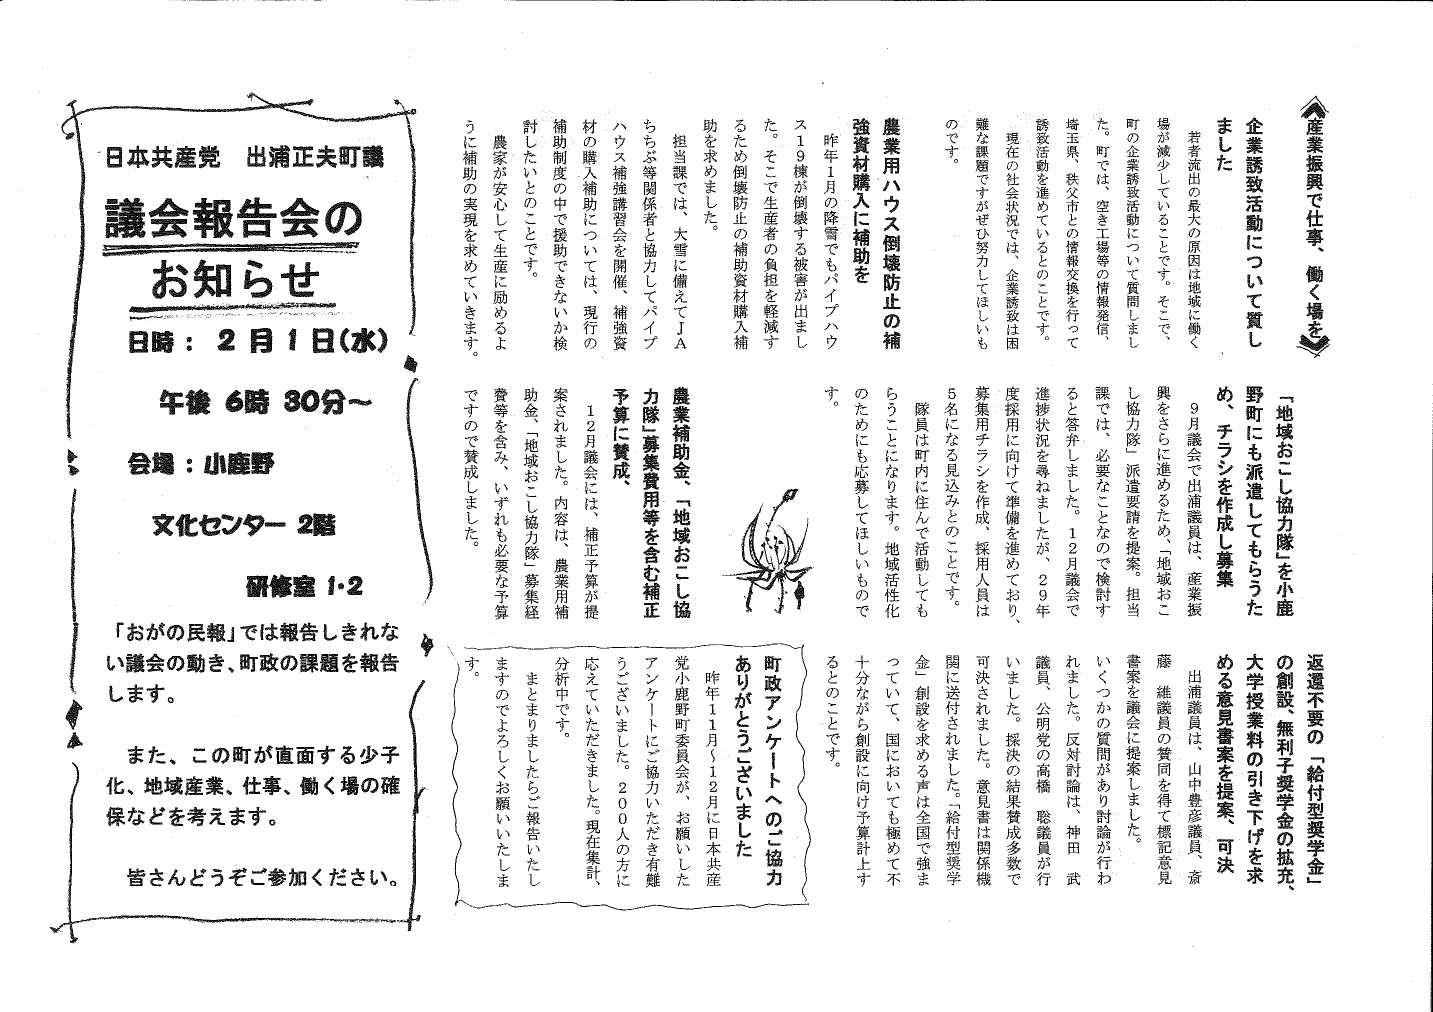 産業振興で仕事、働く場を
企業誘致活動について質し
ました
若者流出の最大の原因は地域に働く
場が減少していることです。そこで、
町の企業誘致活動について質問しまし
た。町では、空き工場等の情報発信、
埼玉県、秩父市との情報交換を行って
誘致活動を進めているとのことです。
現在の社会状況では、企業誘致は困
難な課題ですがぜひ努力してほしいも
のです。
農業用ハウス倒壊防止の補
強資材購入に補助を
昨年1月の降雪でもパイプハウ
ス19棟が倒壊する被害が出まし
た。そこで生産者の負担を軽減す
るため倒壊防止の補助資材購入補
助を求めました。
担当課では、大雪に備えてJA
ちちぶ等関係者と協力してパイプ
ハウス補強講習会を開催、補強資
材の購入補助については、現行の
補助制度の中で援助できないか検
討したいとのことです。
農家が安心して生産に励めるよ
うに補助の実現を求めていきます。
「地域おこし協力隊」を小鹿
野町にも派遣してもらうた
め、チラシを作成し募集
9月議会で出浦議員は、産業振
興をさらに進めるため、「地域おこ
し協力隊」派遣要請を提案。担当
課では、必要なことなので検討す
ると答弁しました。12月議会で
進捗状況を尋ねましたが、29年
度採用に向けて準備を進めており、
募集用チラシを作成、採用人員は
5名になる見込みとのことです。
隊員は町内に住んで活動しても
らうことになります。地域活性化
のためにも応募してほしいもので
す。
農業補助金、「地域おこし協
力隊」募集費用等を含む補正
予算に賛成、
12月議会には、補正予算が提
案されました。内容は、農業用補
助金、「地域おこし協力隊」募集経
費等を含み、いずれも必要な予算
ですので賛成しました。
返還不要の「給付型奨学金」
の創設、無利子奨学金の拡充、
大学授業料の引き下げを求
める意見書案を提案、可決
出浦議員は、山中豊彦議員、斎
藤 維議員の賛同を得て標記意見
書案を議会に提案しました。
いくつかの質問があり討論が行わ
れました。反対討論は、神田 武
議員、公明党の高橋 聡議員が行
いました。採決の結果賛成多数で
可決されました。意見書は関係機
関に送付されました。「給付型奨学
金」創設を求める声は全国で強ま
っていて、国においても極めて不
十分ながら創設に向け予算計上す
るとのことです。
町政アンケートへのご協力
ありがとうございました
昨年11月~12月に日本共産
党小鹿野町委員会が、お願いした
アンケートにご協力いただき有難
うございました。200人の方に
応えていただきました。現在集計、
分析中です。
まとまりましたらご報告いたし
ますのでよろしくお願いいたしま
す。
日本共産党 出浦正夫町議
議会報告会の
お知らせ
日時:2月1日(水)
午後6時30分~
会場:小鹿野
文化センター2階
研修室1・2
「おがの民報」では報告しきれな
い議会の動き、町政の課題を報告
します。
また、この町が直面する少子
化、地域産業、仕事、働く場の確
保などを考えます。
皆さんどうぞご参加ください。